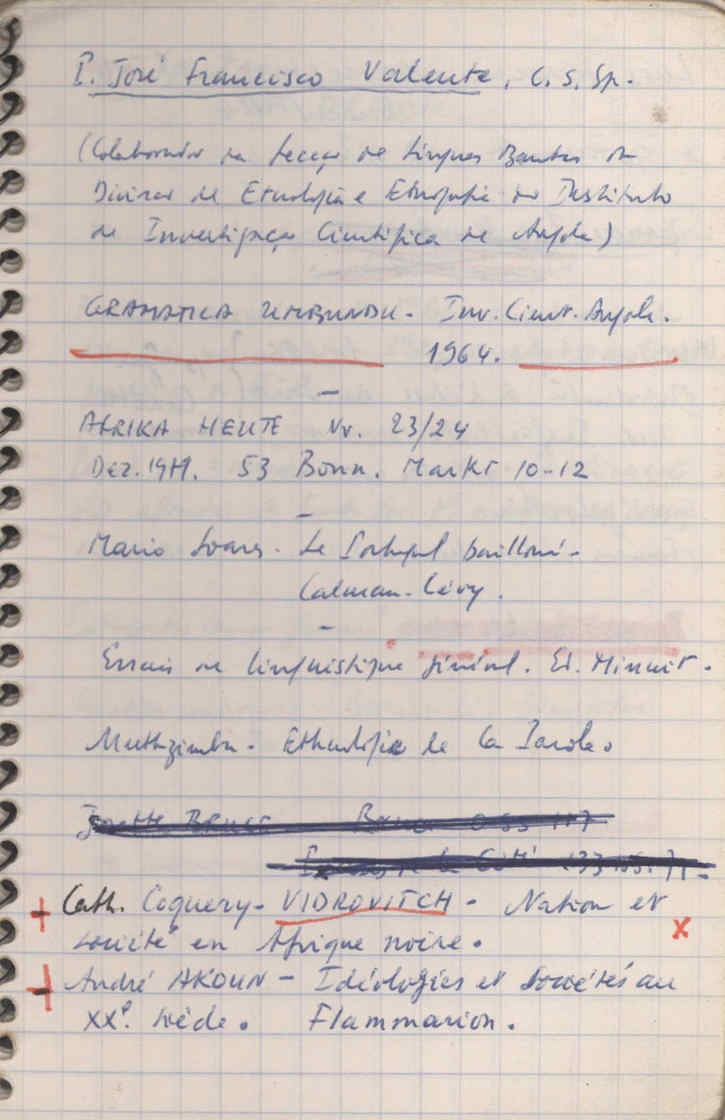 P. José Francisco Valente, C. S. Sp.
(Colaborador da Secção de Línguas Bantas da
Divisão de Etnologia e Etnografia do Instituto
de Investigação Científica de Angola)
GRAMATICA UMBUNDU - Inv. Cient. Angola.
1964.
AFRIKA HEUTE Nr. 23/24
53 Bonn. Markt 10-12
Mario Soares - Le Portugal bailloné -
Calman-Lévy.
Essais de linguistique général. Ed. Minuit.
Ethnologie de la Parole.
Cath. Coquery-VIDROVITCH - Nation et
société en Afrique noire.
André AKOUN - Idéologies et Sociétés au
XXe. siècle. Flammarion.